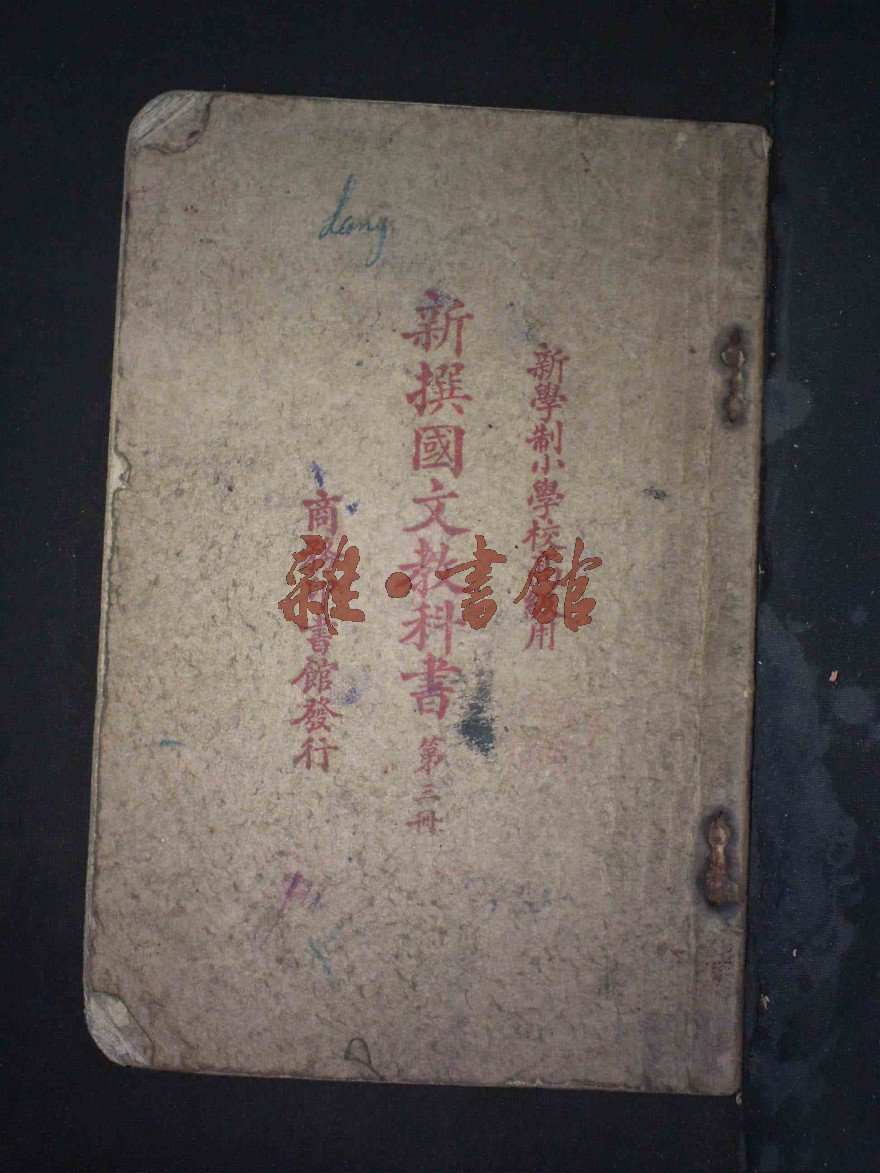 新學制小學校級用
新撰國文教科書 第三冊
商務印書館發行
Lang
雜·書館